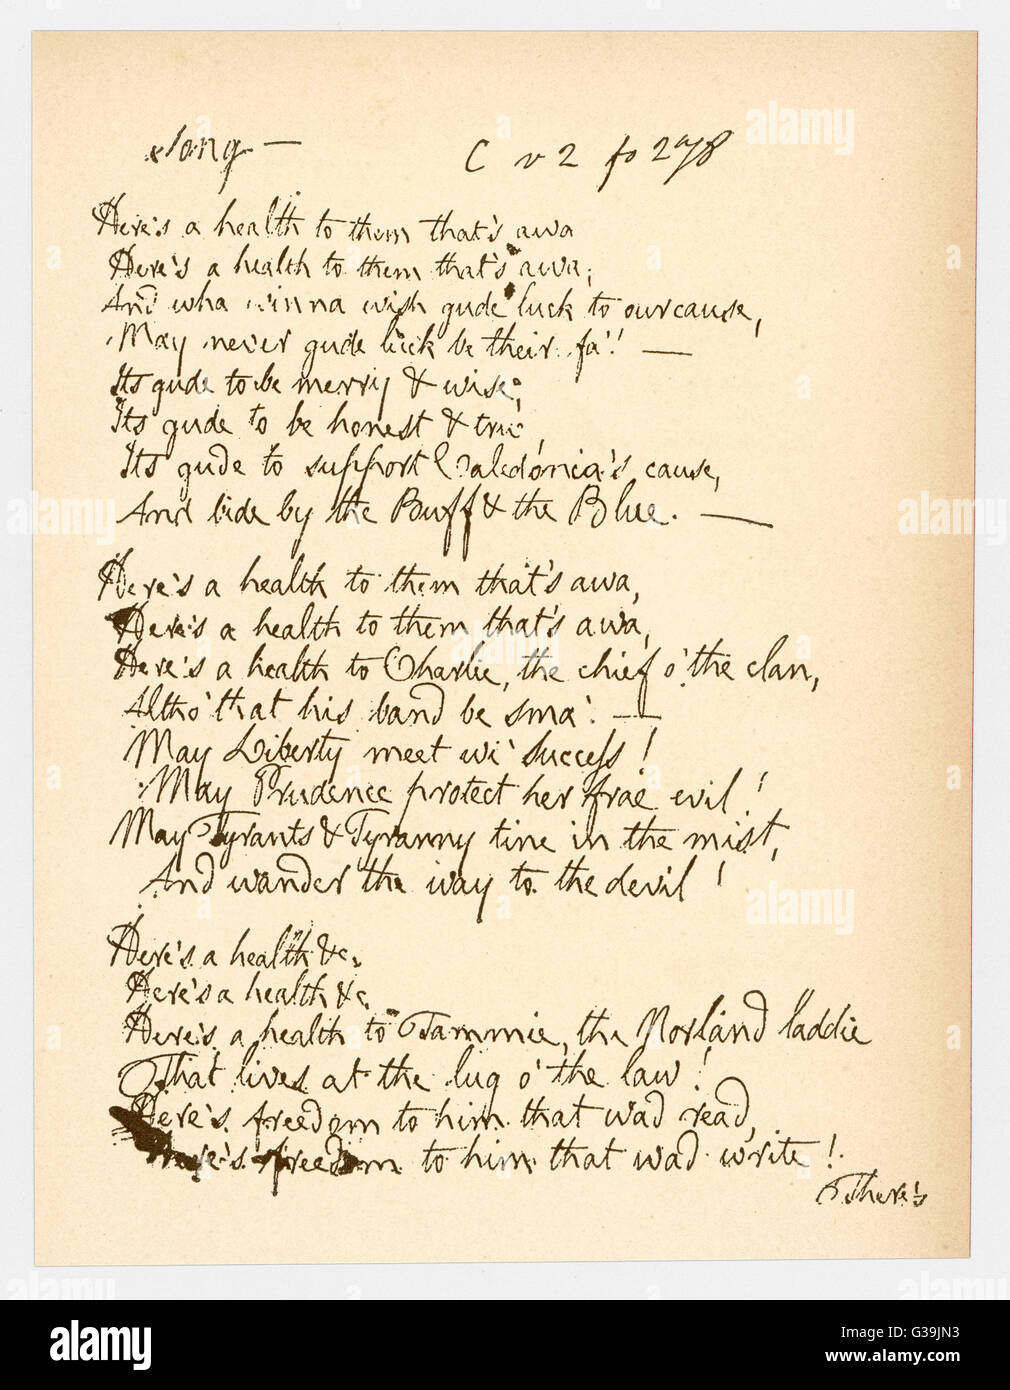 Song —
C v 2 fo 278
Here's a health to them that's awa
Here's a health to them that's awa;
And wha winna wish gude luck to our cause,
May never gude luck be their fa'! —
Its gude to be merry & wise;
Its gude to be honest & true,
Its gude to support Caledonia's cause,
And bide by the Buff & the Blue. —
Here's a health to them that's awa,
Here's a health to them that's awa,
Here's a health to Charlie, the chief o' the clan,
Altho' that his band be sma'. —
May Liberty meet wi' success!
May Prudence protect her frae evil!
May Tyrants & Tyranny tine in the mist,
And wander the way to the devil!
Here's a health &c.
Here's a health &c.
Here's a health to Tammie, the Norland laddie
That lives at the lug o' the law!
Here's freedom to him that wad read,
Here's freedom to him that wad write!
There's
alamy
Image ID: G39JN3
www.alamy.com